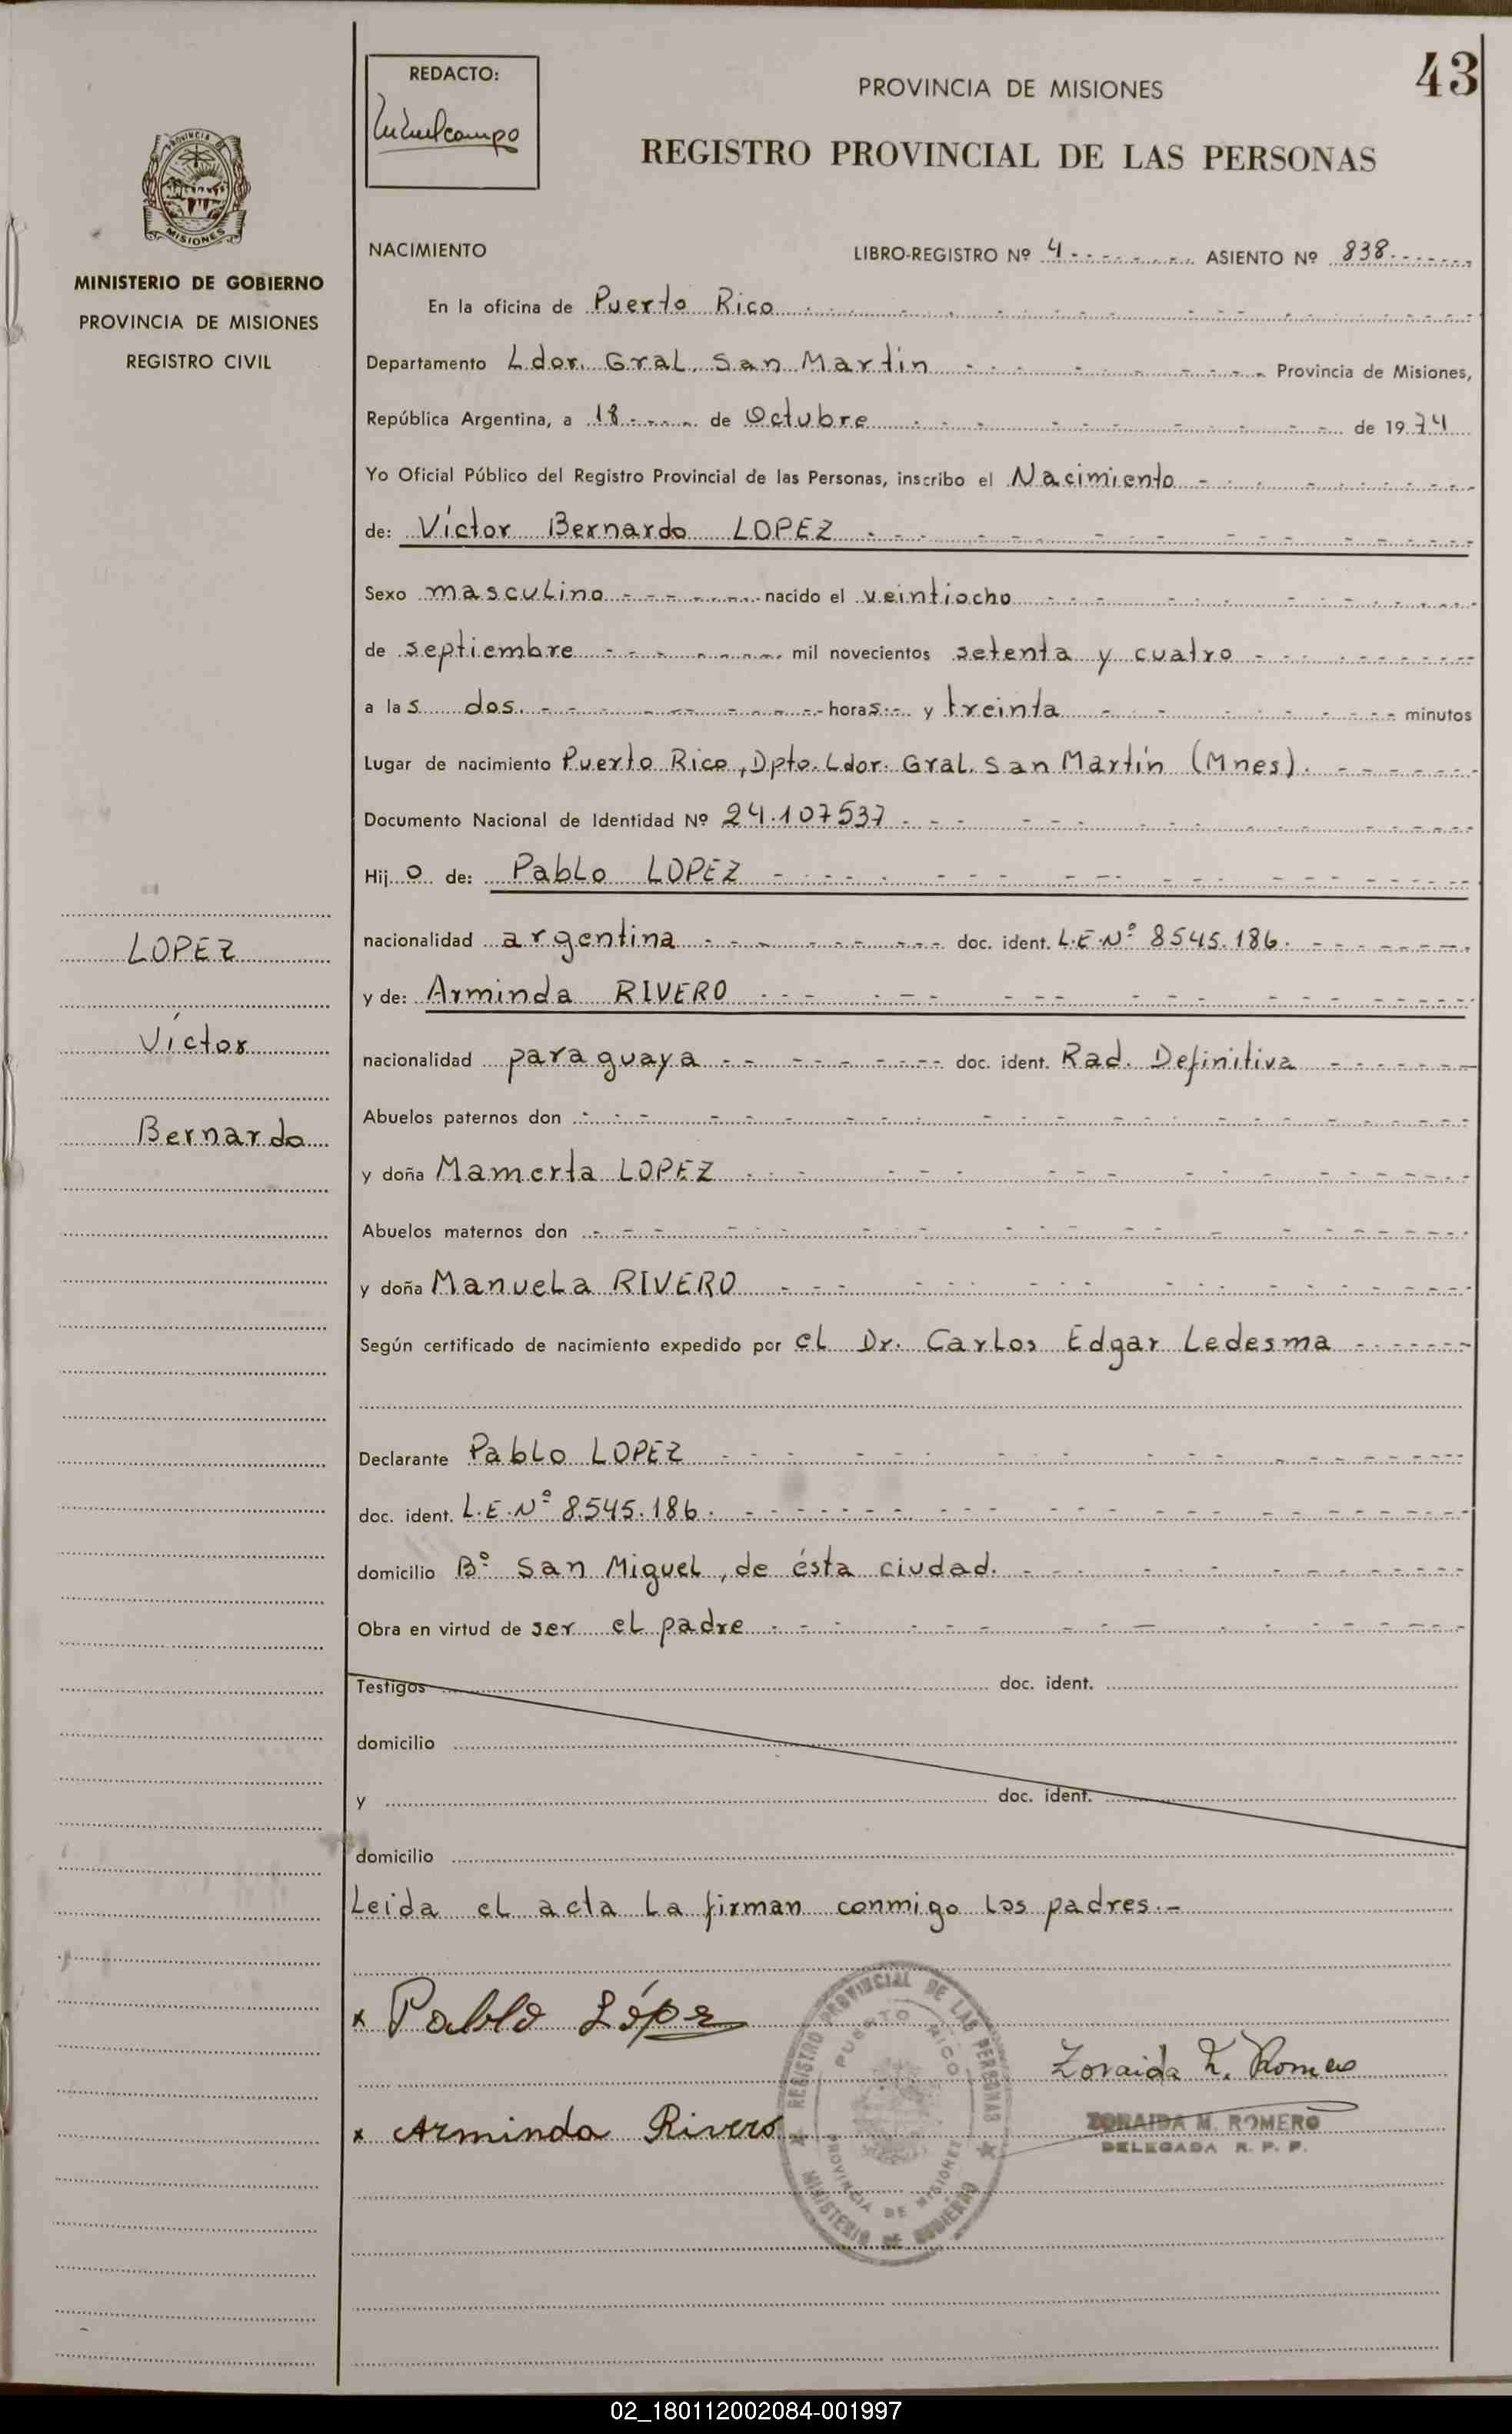 43
REDACTO:
PROVINCIA DE MISIONES
REGISTRO PROVINCIAL DE LAS PERSONAS
PROVINCIA DE
MISIONES
MINISTERIO DE GOBIERNO
PROVINCIA DE MISIONES
REGISTRO CIVIL
NACIMIENTO LIBRO-REGISTRO Nº 4 ASIENTO Nº 838
En la oficina de Puerto Rico
Departamento Ldor. Gral. San Martín Provincia de Misiones,
República Argentina, a 18 de Octubre de 1974
Yo Oficial Público del Registro Provincial de las Personas, inscribo el Nacimiento
de: Víctor Bernardo LOPEZ
Sexo masculino nacido el veintiocho
de septiembre mil novecientos setenta y cuatro
a las dos horas y treinta minutos
Lugar de nacimiento Puerto Rico, Dpto. Ldor. Gral. San Martín (Mnes).
Documento Nacional de Identidad Nº 24.107537
Hijo de: Pablo LOPEZ
nacionalidad argentina doc. ident. L.E.Nº 8545.186.
y de: Arminda RIVERO
nacionalidad paraguaya doc. ident. Rad. Definitiva
Abuelos paternos don
y doña Mamerta LOPEZ
Abuelos maternos don
y doña Manuela RIVERO
Según certificado de nacimiento expedido por el Dr. Carlos Edgar Ledesma
Declarante Pablo LOPEZ
doc. ident. L.E.Nº 8.545.186.
domicilio Bº San Miguel, de ésta ciudad.
Obra en virtud de ser el padre
Testigos doc. ident.
domicilio
y doc. ident.
domicilio
Leida el acta la firman conmigo los padres.-
LOPEZ
Víctor
Bernardo
x Pablo López
x Arminda Rivero
REGISTRO PROVINCIAL DE LAS PERSONAS
PUERTO RICO
PROVINCIA DE MISIONES
MINISTERIO DE GOBIERNO
Zoraida M. Romero
ZORAIDA M. ROMERO
DELEGADA R. P. P.
02_180112002084-001997